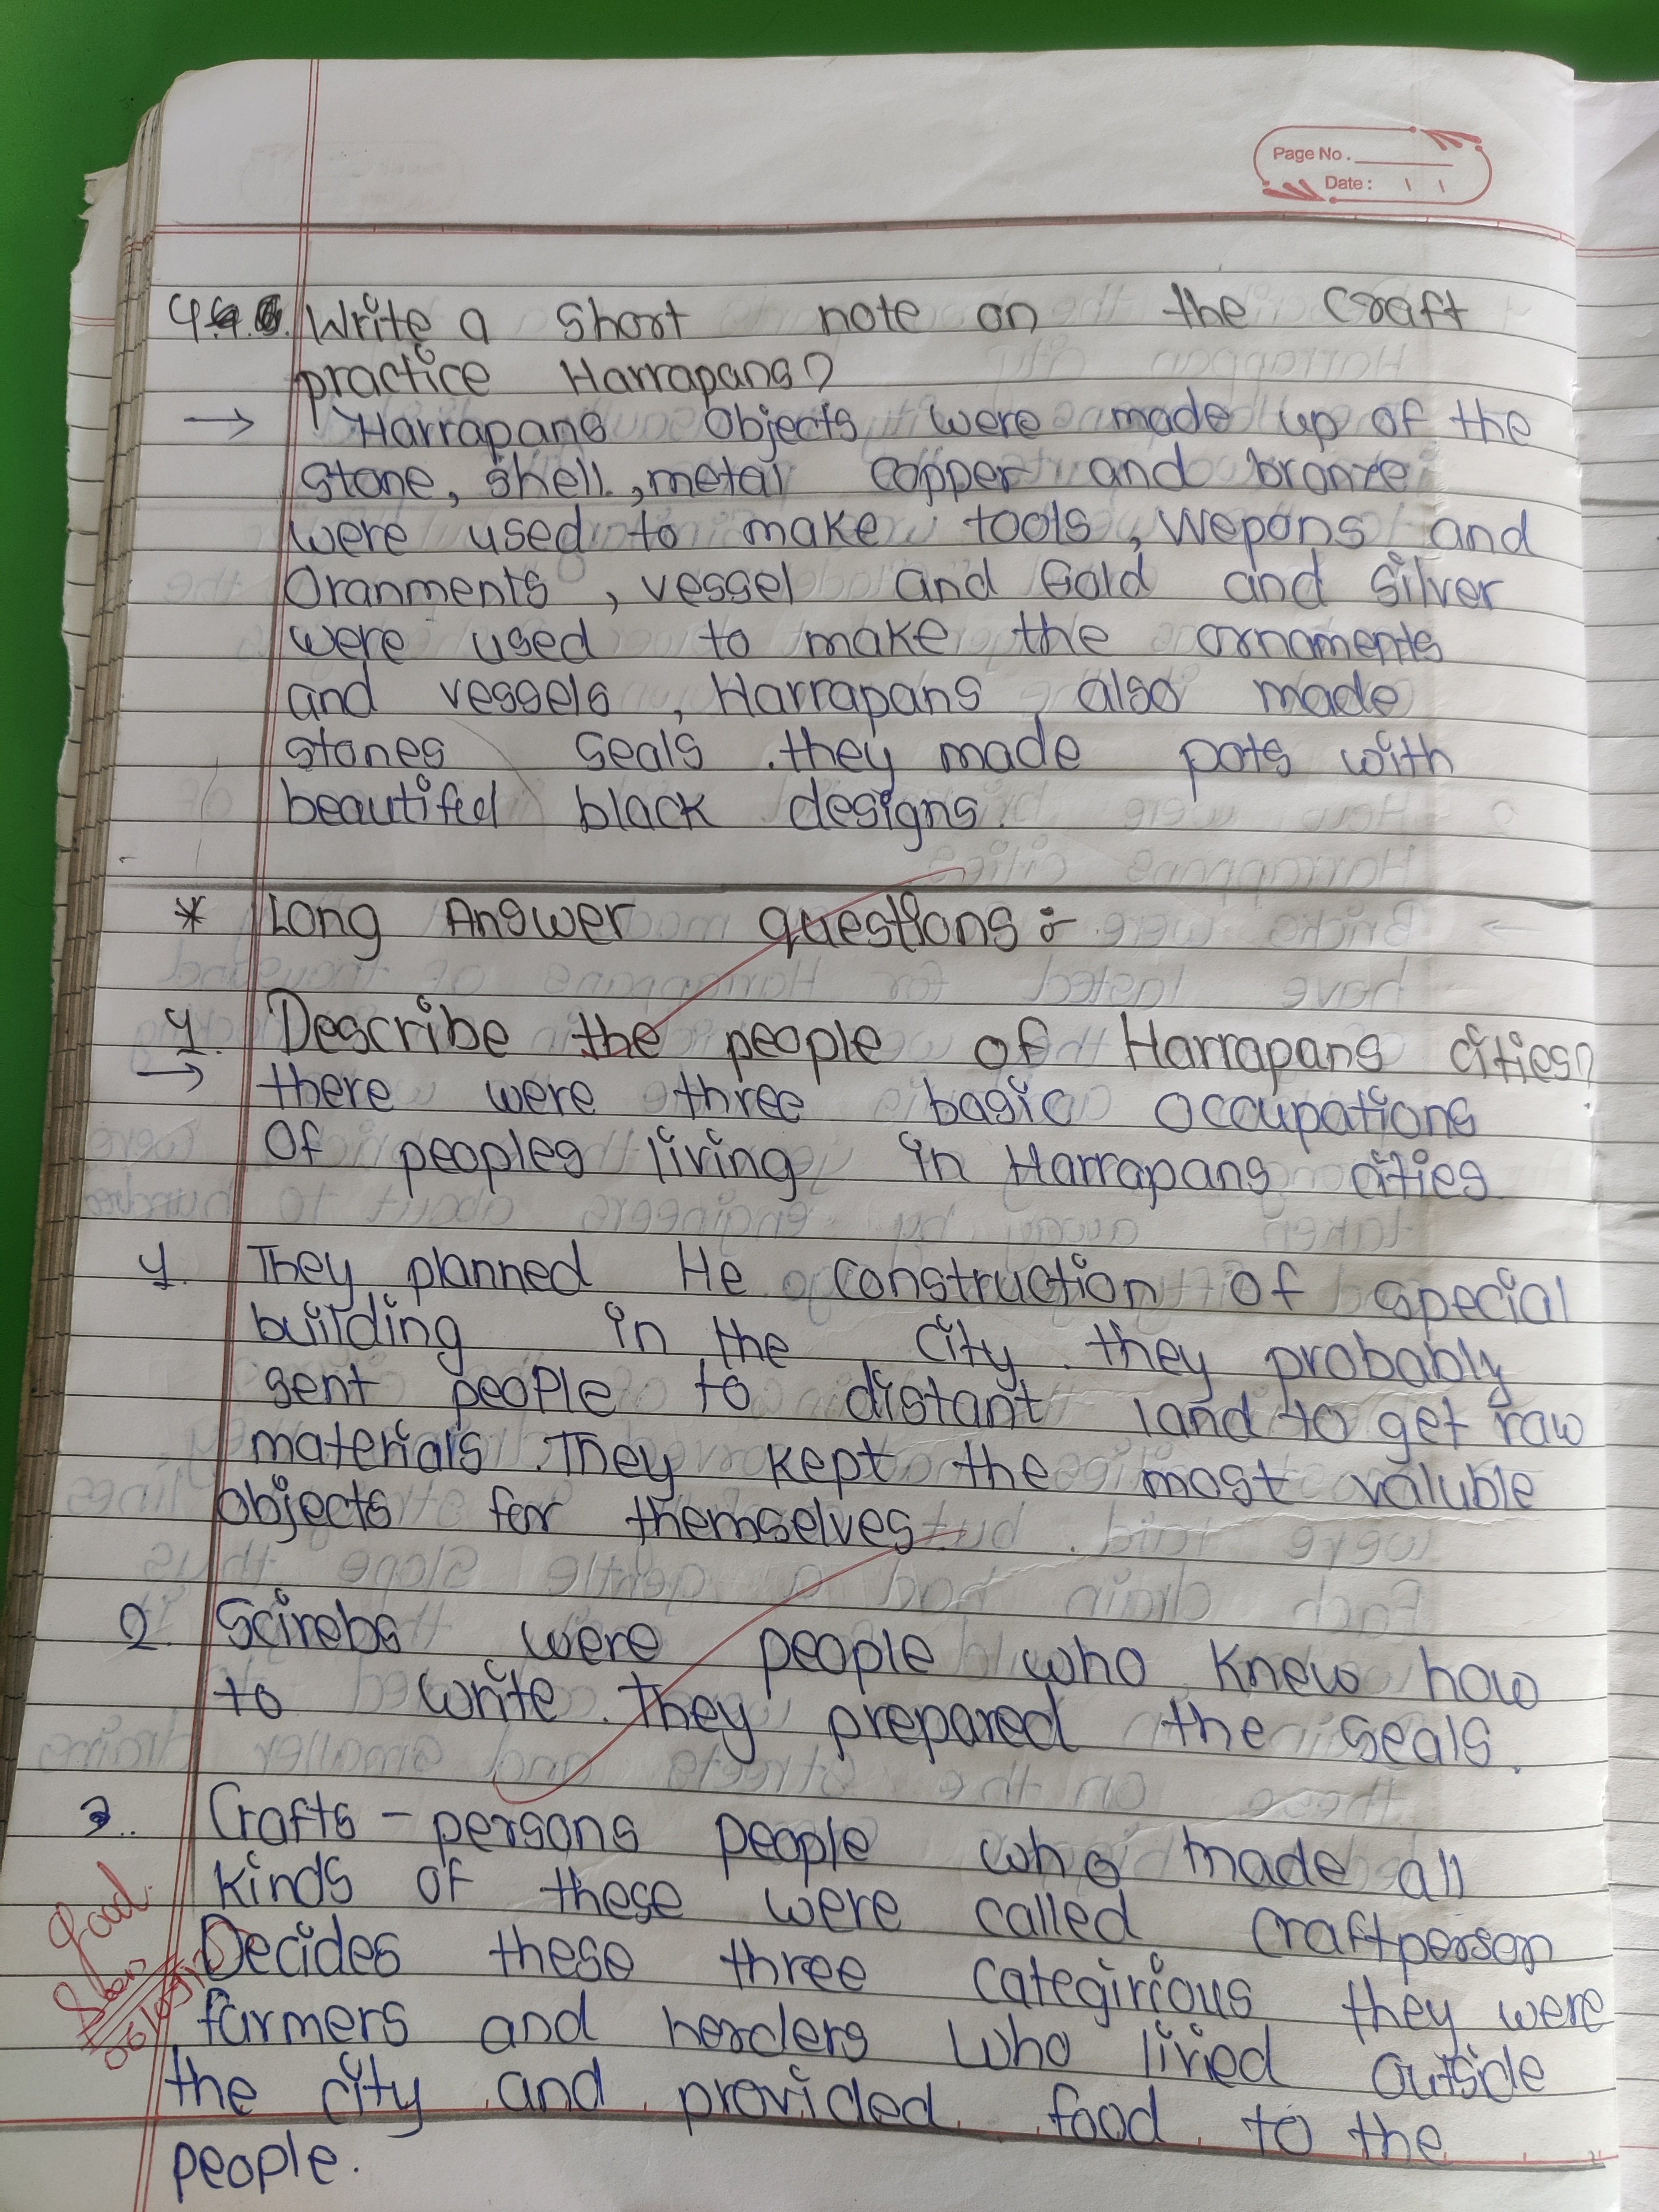 Page No.
Date :
4. Write a short note on the craft
practice Harrapans?
→ Harrapans objects were made up of the
stone, shell, metal copper and bronze
were used to make tools, wepons and
Oranments, vessel and Gold and silver
were used to make the ornaments
and vessels, Harrapans also made
stones seals. they made pots with
beautiful black designs.
* Long Answer questions :-
1. Describe the people of Harrapans cities?
→ there were three basic occupations
of peoples living in Harrapans cities
1. They planned He construction of special
building in the city. they probably
sent people to distant land to get raw
materials. They kept the most valuble
objects for themselves
2. Scirebs were people who knew how
to write. They prepared the seals.
3. Crafts-persons people who made all
kinds of these were called craftperson
Decides these three categirious they were
farmers and herders who livied outside
the city and provided food to the
people.
Good